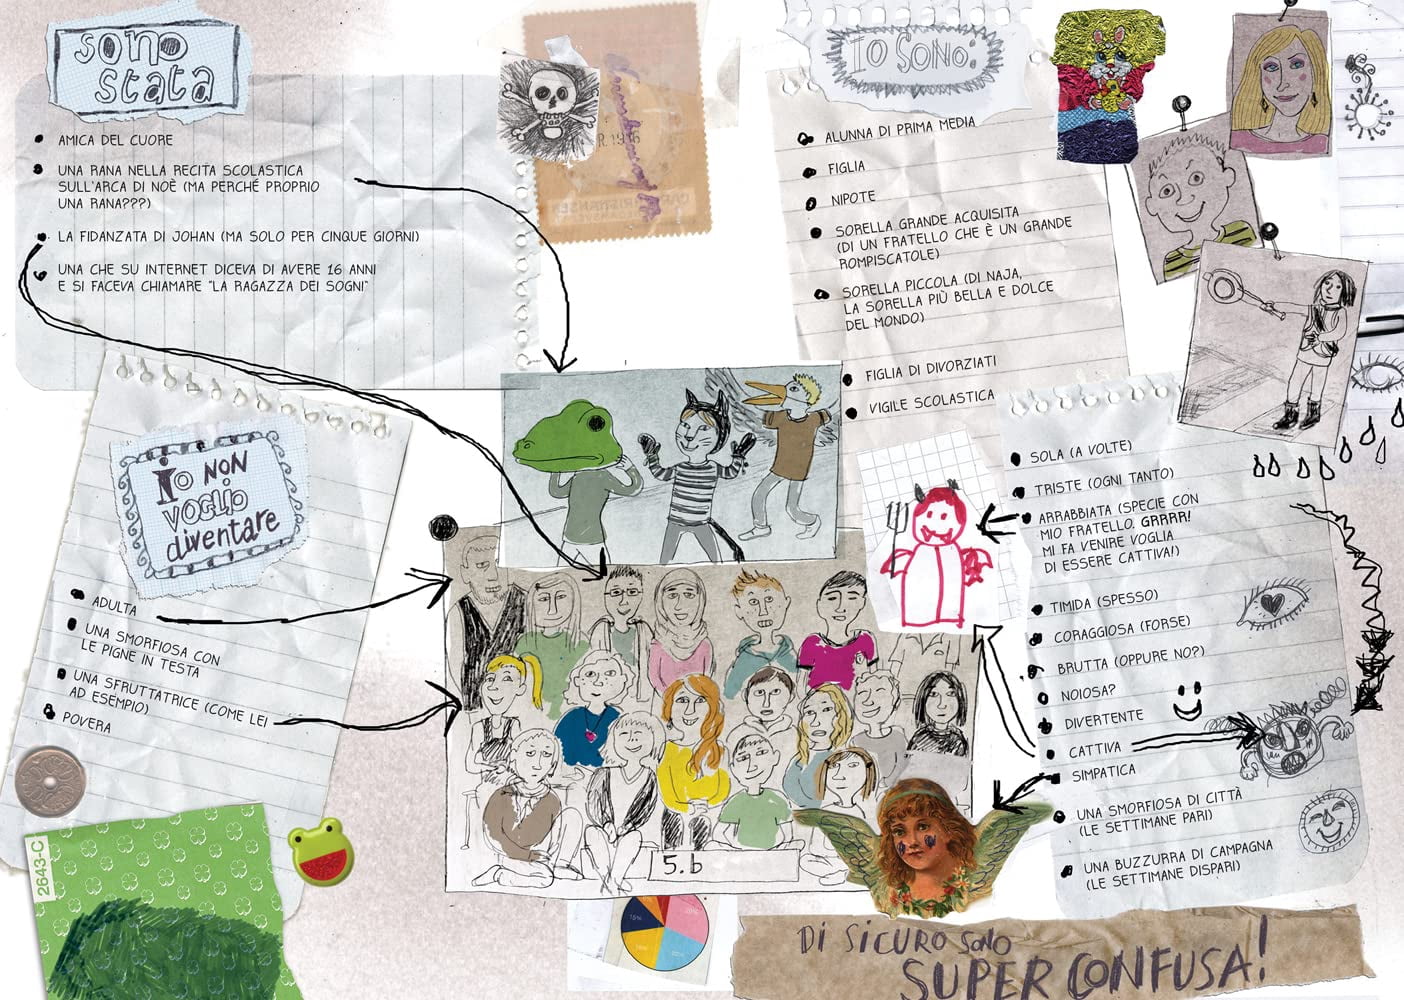 SONO
STATA
AMICA DEL CUORE
UNA RANA NELLA RECITA SCOLASTICA
SULL'ARCA DI NOÈ (MA PERCHÉ PROPRIO
UNA RANA???)
LA FIDANZATA DI JOHAN (MA SOLO PER CINQUE GIORNI)
UNA CHE SU INTERNET DICEVA DI AVERE 16 ANNI
E SI FACEVA CHIAMARE "LA RAGAZZA DEI SOGNI"
IO NON
VOGLIO
diventare
ADULTA
UNA SMORFIOSA CON
LE PIGNE IN TESTA
UNA SFRUTTATRICE (COME LEI
AD ESEMPIO)
POVERA
2643-C
5.b
IO SONO:
ALUNNA DI PRIMA MEDIA
FIGLIA
NIPOTE
SORELLA GRANDE ACQUISITA
(DI UN FRATELLO CHE È UN GRANDE
ROMPISCATOLE)
SORELLA PICCOLA (DI NAJA,
LA SORELLA PIÙ BELLA E DOLCE
DEL MONDO)
FIGLIA DI DIVORZIATI
VIGILE SCOLASTICA
SOLA (A VOLTE)
TRISTE (OGNI TANTO)
ARRABBIATA (SPECIE CON
MIO FRATELLO. GRRRR!
MI FA VENIRE VOGLIA
DI ESSERE CATTIVA!)
TIMIDA (SPESSO)
CORAGGIOSA (FORSE)
BRUTTA (OPPURE NO?)
NOIOSA?
DIVERTENTE
CATTIVA
SIMPATICA
UNA SMORFIOSA DI CITTÀ
(LE SETTIMANE PARI)
UNA BUZZURRA DI CAMPAGNA
(LE SETTIMANE DISPARI)
DI SICURO SONO
SUPER CONFUSA!